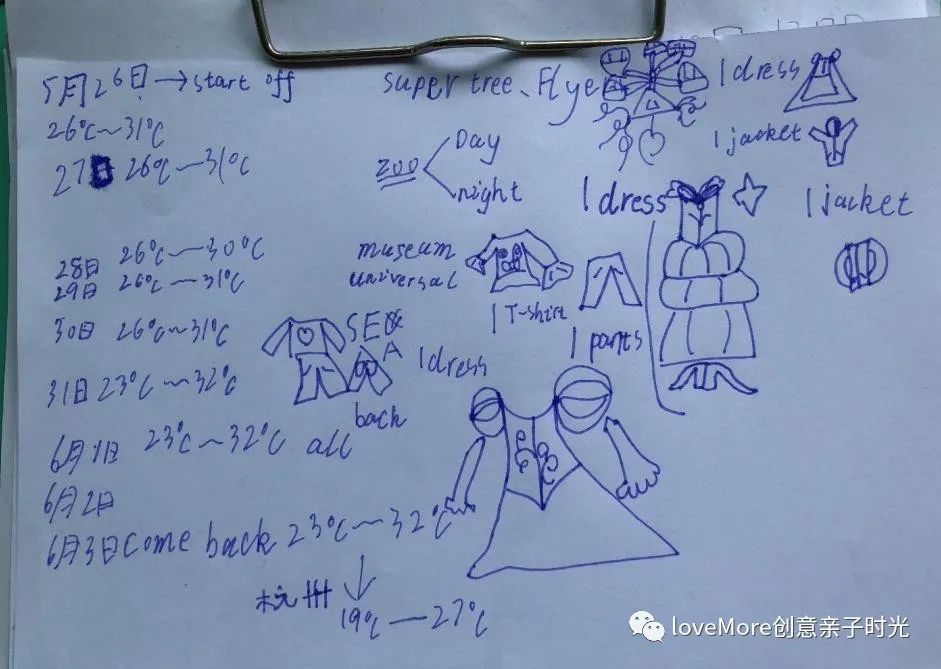 5月26日→start off
super tree、Flyer
1 dress
26℃~31℃
1 jacket
27日 26℃—31℃
zoo
Day
night
1 dress
1 jacket
28日 26℃—30℃
museum
29日 26℃~31℃
universal
1 T-shirt
30日 26℃~31℃
SEA
1 pants
31日 23℃~32℃
1 dress
back
6月1日 23℃~32℃ all
6月2日
6月3日come back 23℃~32℃
杭州
19℃—27℃
loveMore创意亲子时光